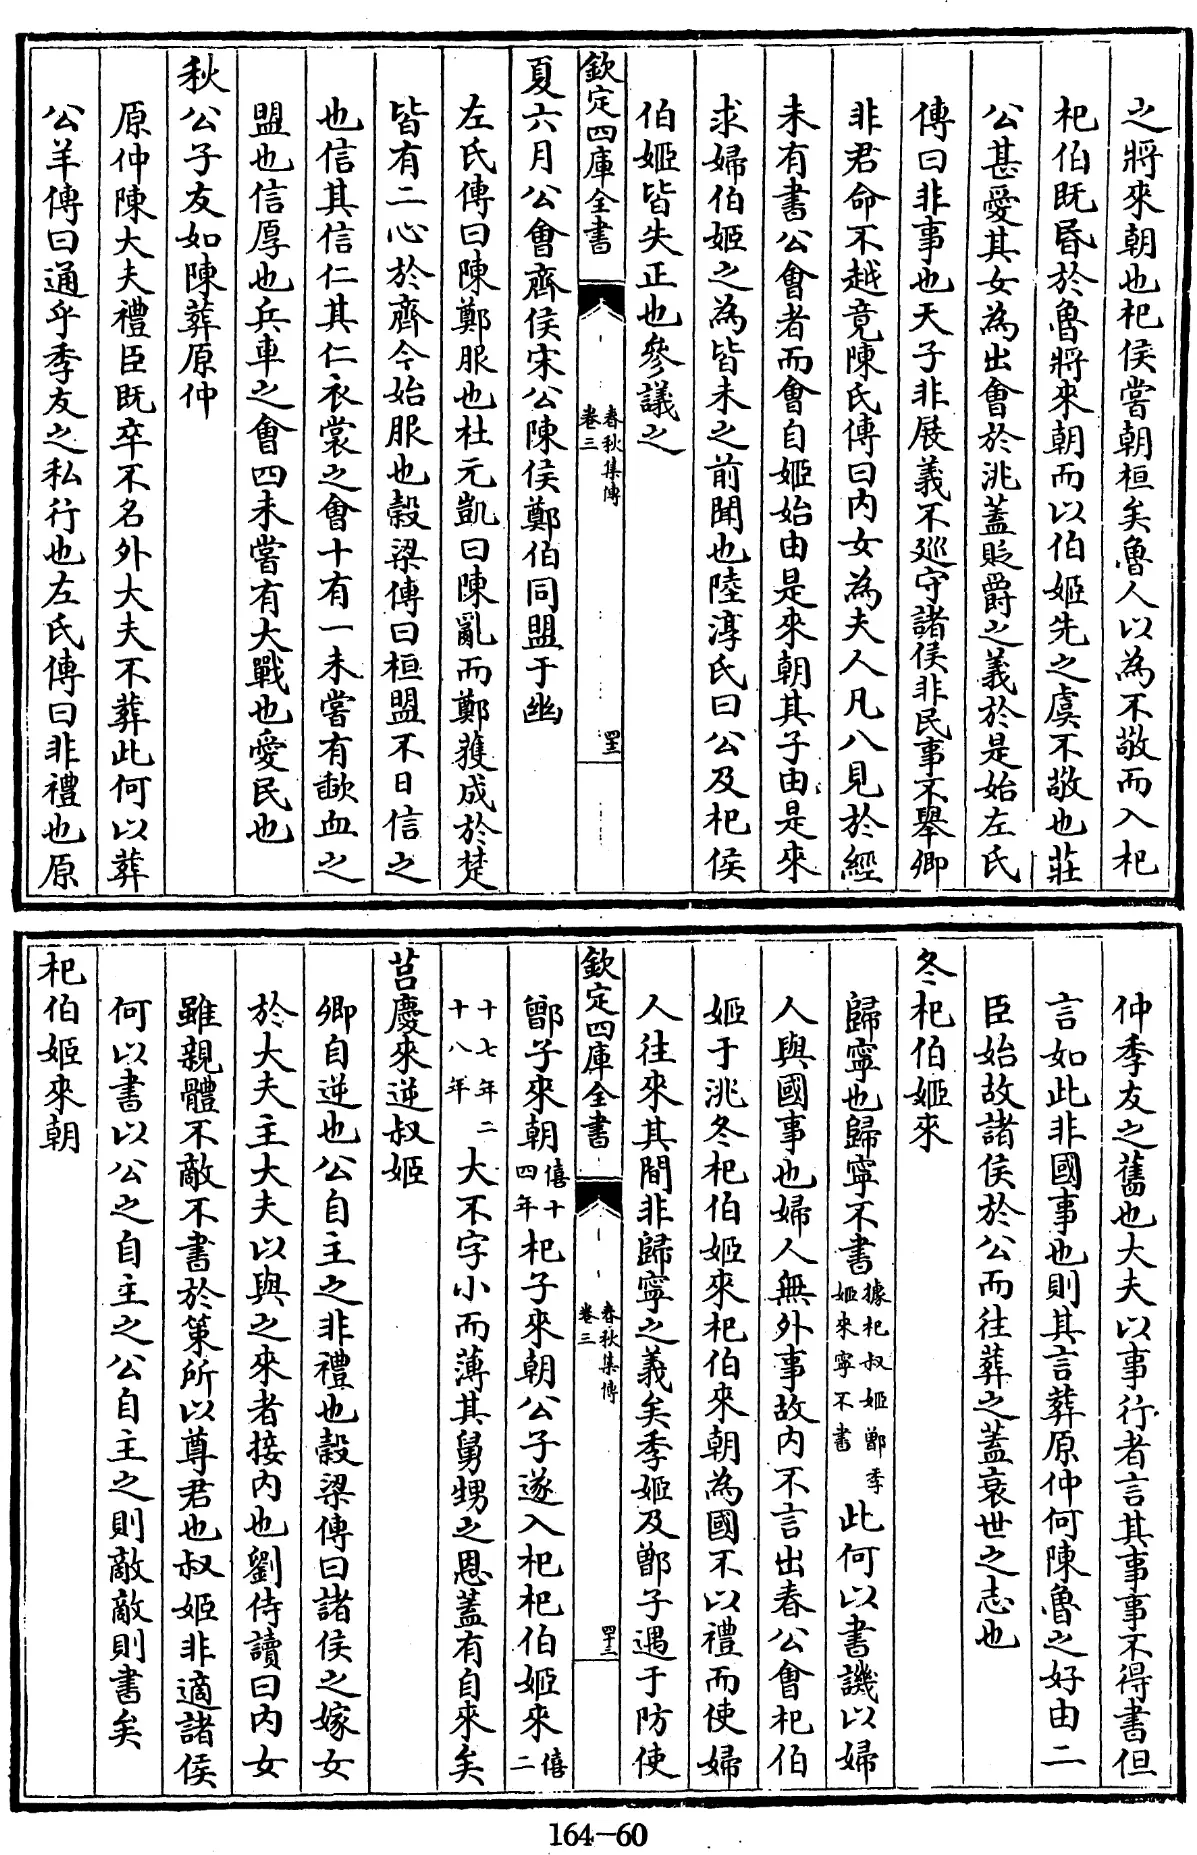 之將來朝也杞侯嘗朝桓矣魯人以為不敬而入杞
杞伯既昏於魯將來朝而以伯姬先之虞不敬也莊
公甚愛其女為出會於洮蓋貶爵之義於是始左氏
傳曰非事也天子非展義不廵守諸侯非民事不舉卿
非君命不越竟陳氏傳曰内女為夫人凡八見於經
未有書公會者而會自姬始由是來朝其子由是來
求婦伯姬之為皆未之前聞也陸淳氏曰公及杞侯
伯姬皆失正也參議之
欽定四庫全書
春秋集傳
卷三
四三
夏六月公會齊侯宋公陳侯鄭伯同盟于幽
左氏傳曰陳鄭服也杜元凱曰陳亂而鄭獲成於楚
皆有二心於齊今始服也榖梁傳曰桓盟不日信之
也信其信仁其仁衣裳之會十有一未嘗有歃血之
盟也信厚也兵車之會四未嘗有大戰也愛民也
秋公子友如陳葬原仲
原仲陳大夫禮臣既卒不名外大夫不葬此何以葬
公羊傳曰通乎季友之私行也左氏傳曰非禮也原
仲季友之舊也大夫以事行者言其事事不得書但
言如此非國事也則其言葬原仲何陳魯之好由二
臣始故諸侯於公而往葬之蓋衰世之志也
冬杞伯姬來
歸寧也歸寧不書據杞叔姬鄫季姬來寧不書此何以書譏以婦
人與國事也婦人無外事故内不言出春公會杞伯
姬于洮冬杞伯姬來杞伯來朝為國不以禮而使婦
人往來其間非歸寧之義矣季姬及鄫子遇于防使
欽定四庫全書
春秋集傳
卷三
四十三
鄫子來朝僖十四年杞子來朝公子遂入杞杞伯姬來僖二
十七年二十八年大不字小而薄其舅甥之恩蓋有自來矣
莒慶來逆叔姬
卿自逆也公自主之非禮也榖梁傳曰諸侯之嫁女
於大夫主大夫以與之來者接内也劉侍讀曰内女
雖親體不敵不書於策所以尊君也叔姬非適諸侯
何以書以公之自主之公自主之則敵敵則書矣
杞伯姬來朝
164—60